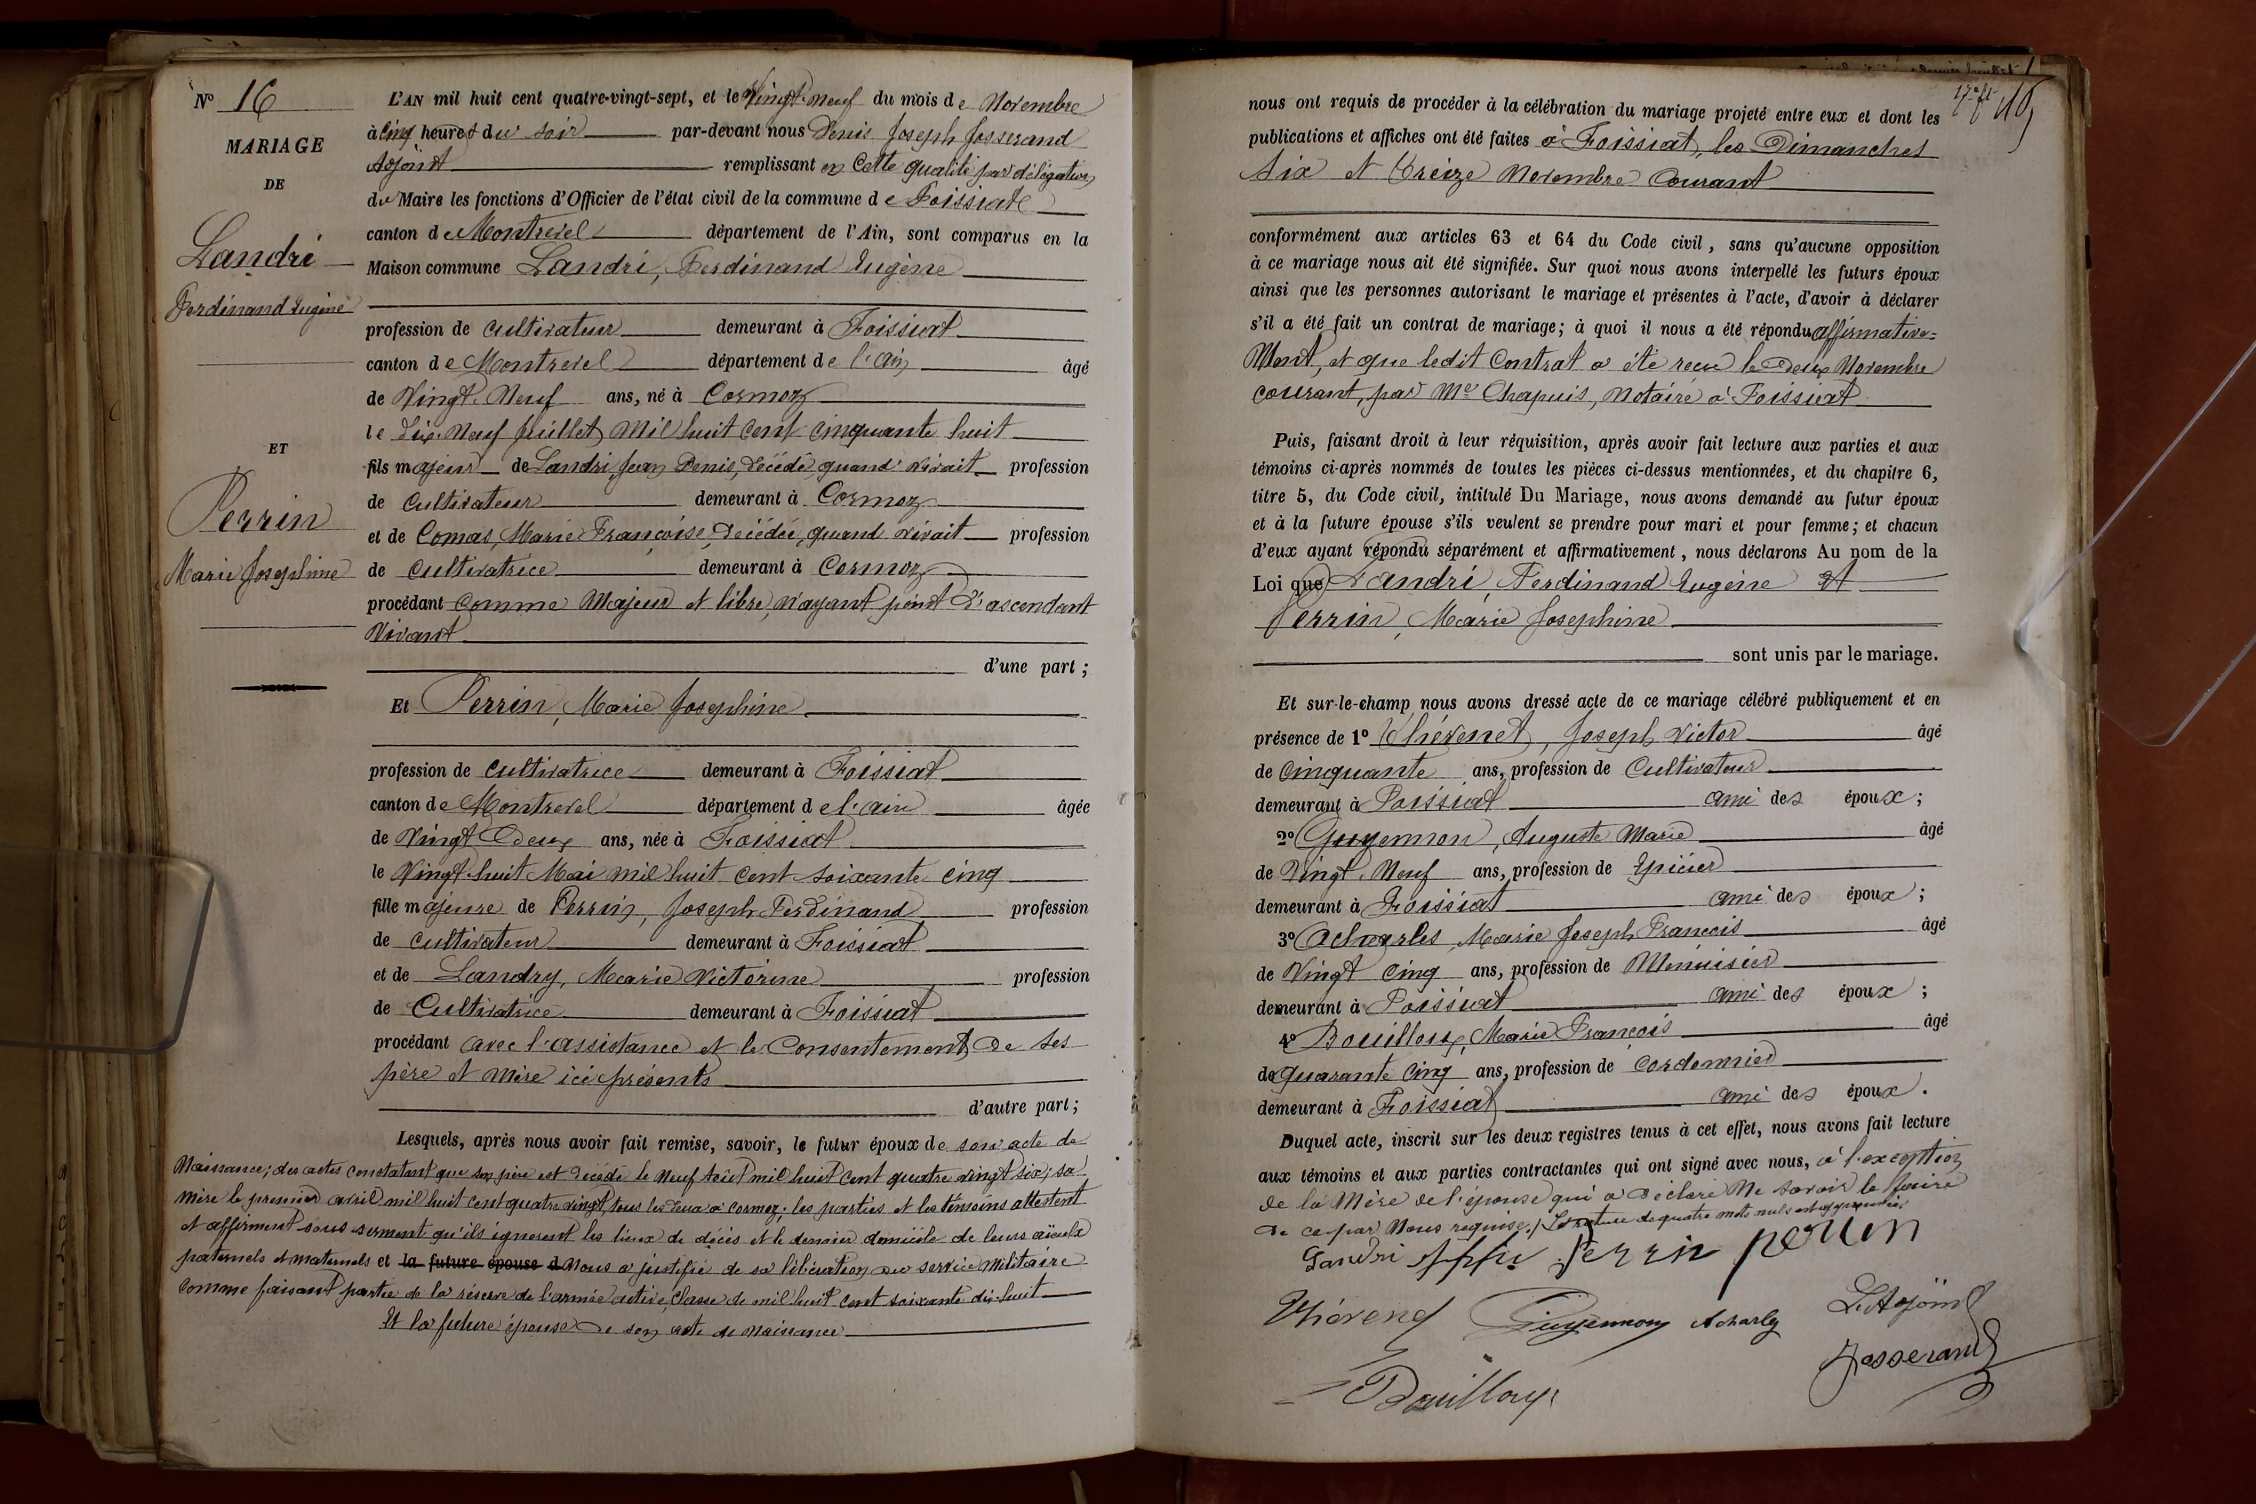 N° 16
MARIAGE
DE
Landri
Ferdinand Eugène
ET
Perrin
Marie Josephine
L'AN mil huit cent quatre-vingt-sept, et le Vingt-Neuf du mois de Novembre
à cinq heures du soir par-devant nous Denis Joseph Josserand
Adjoint remplissant en cette qualité par délégation
du Maire les fonctions d'Officier de l'état civil de la commune de Foissiat
canton de Montrevel département de l'Ain, sont comparus en la
Maison commune Landri, Ferdinand Eugène
profession de cultivateur demeurant à Foissiat
canton de Montrevel département de l'ain âgé
de Vingt-Neuf ans, né à Cormoz
le dix-Neuf Juillet Mil huit cent cinquante huit
fils majeur de Landri Jean Denis, décédé, quand vivait profession
de cultivateur demeurant à Cormoz
et de Comas, Marie Françoise, Décédée, quand vivait profession
de cultivatrice demeurant à Cormoz
procédant comme Majeur et libre, n'ayant point d'ascendant
Vivant
d'une part ;
Et Perrin, Marie Josephine
profession de cultivatrice demeurant à Foissiat
canton de Montrevel département de l'ain âgée
de Vingt Deux ans, née à Foissiat
le Vingt-huit Mai mil huit cent soixante cinq
fille majeure de Perrin, Joseph Ferdinand profession
de cultivateur demeurant à Foissiat
et de Landry, Marie Victorine profession
de Cultivatrice demeurant à Foissiat
procédant avec l'assistance et le Consentement de ses
père et Mère ici présents
d'autre part ;
Lesquels, après nous avoir fait remise, savoir, le futur époux de son acte de
Naissance ; des actes constatant que son père est décédé le Neuf Août mil huit cent quatre vingt six ; sa
mère le premier avril mil huit cent quatre vingt, tous les deux à Cormoz ; les parties et les témoins attestent
et affirment sous serment qu'ils ignorent les lieux de décès et le dernier domicile de leurs aïeuls
paternels et maternels et la future épouse d Nous a justifié de sa libération du service Militaire
comme faisant partie de la réserve de l'armée active, Classe de mil huit cent soixante dix-huit
Et la future épouse de son acte de Naissance
nous ont requis de procéder à la célébration du mariage projeté entre eux et dont les
publications et affiches ont été faites à Foissiat, les Dimanches
Six et Treize Novembre Courant
conformément aux articles 63 et 64 du Code civil, sans qu'aucune opposition
à ce mariage nous ait été signifiée. Sur quoi nous avons interpellé les futurs époux
ainsi que les personnes autorisant le mariage et présentes à l'acte, d'avoir à déclarer
s'il a été fait un contrat de mariage ; à quoi il nous a été répondu affirmative-
Ment, et que ledit Contrat a été reçu le Deux Novembre
courant, par Me Chapuis, Notaire à Foissiat
Puis, faisant droit à leur réquisition, après avoir fait lecture aux parties et aux
témoins ci-après nommés de toutes les pièces ci-dessus mentionnées, et du chapitre 6,
titre 5, du Code civil, intitulé Du Mariage, nous avons demandé au futur époux
et à la future épouse s'ils veulent se prendre pour mari et pour femme ; et chacun
d'eux ayant répondu séparément et affirmativement, nous déclarons Au nom de la
Loi que Landri, Ferdinand Eugène et
Perrin, Marie Josephine
sont unis par le mariage.
Et sur-le-champ nous avons dressé acte de ce mariage célébré publiquement et en
présence de 1° Thévenet, Joseph Victor âgé
de cinquante ans, profession de Cultivateur
demeurant à Foissiat ami des époux ;
2° Guyennon, Auguste Marie âgé
de Vingt-Neuf ans, profession de Epicier
demeurant à Foissiat ami des époux ;
3° Acharles, Marie Joseph François âgé
de Vingt Cinq ans, profession de Menuisier
demeurant à Foissiat ami des époux ;
4° Bouilloux, Marie François âgé
de quarante Cinq ans, profession de Cordonnier
demeurant à Foissiat ami des époux.
Duquel acte, inscrit sur les deux registres tenus à cet effet, nous avons fait lecture
aux témoins et aux parties contractantes qui ont signé avec nous, à l'exception
de la Mère de l'épouse qui a déclaré Ne savoir le faire
de ce par Nous requise. / La rature de quatre mots nuls est approuvée
Landri Perrin perrin
Thévenet Guyennon Acharles L'Adjoint
Josserand
Bouilloux